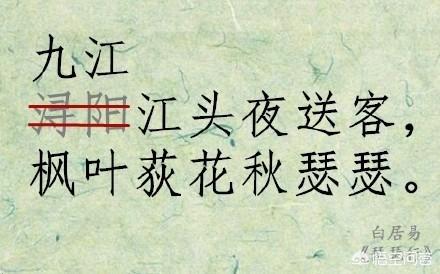 九江
浔阳江头夜送客，
枫叶荻花秋瑟瑟。
白居易
《琵琶行》
悟空问答